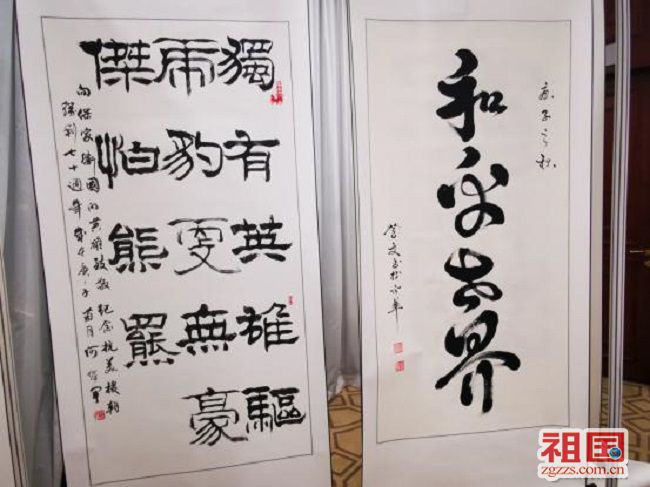 獨有英雄驅
虎豹更無豪
傑怕熊羆
向保家衛國的英雄致敬 紀念抗美援朝
勝利七十週年 歲在庚子菊月 何
庚子之秋
和平世界
文书於
祖国
zgzzs.com.cn